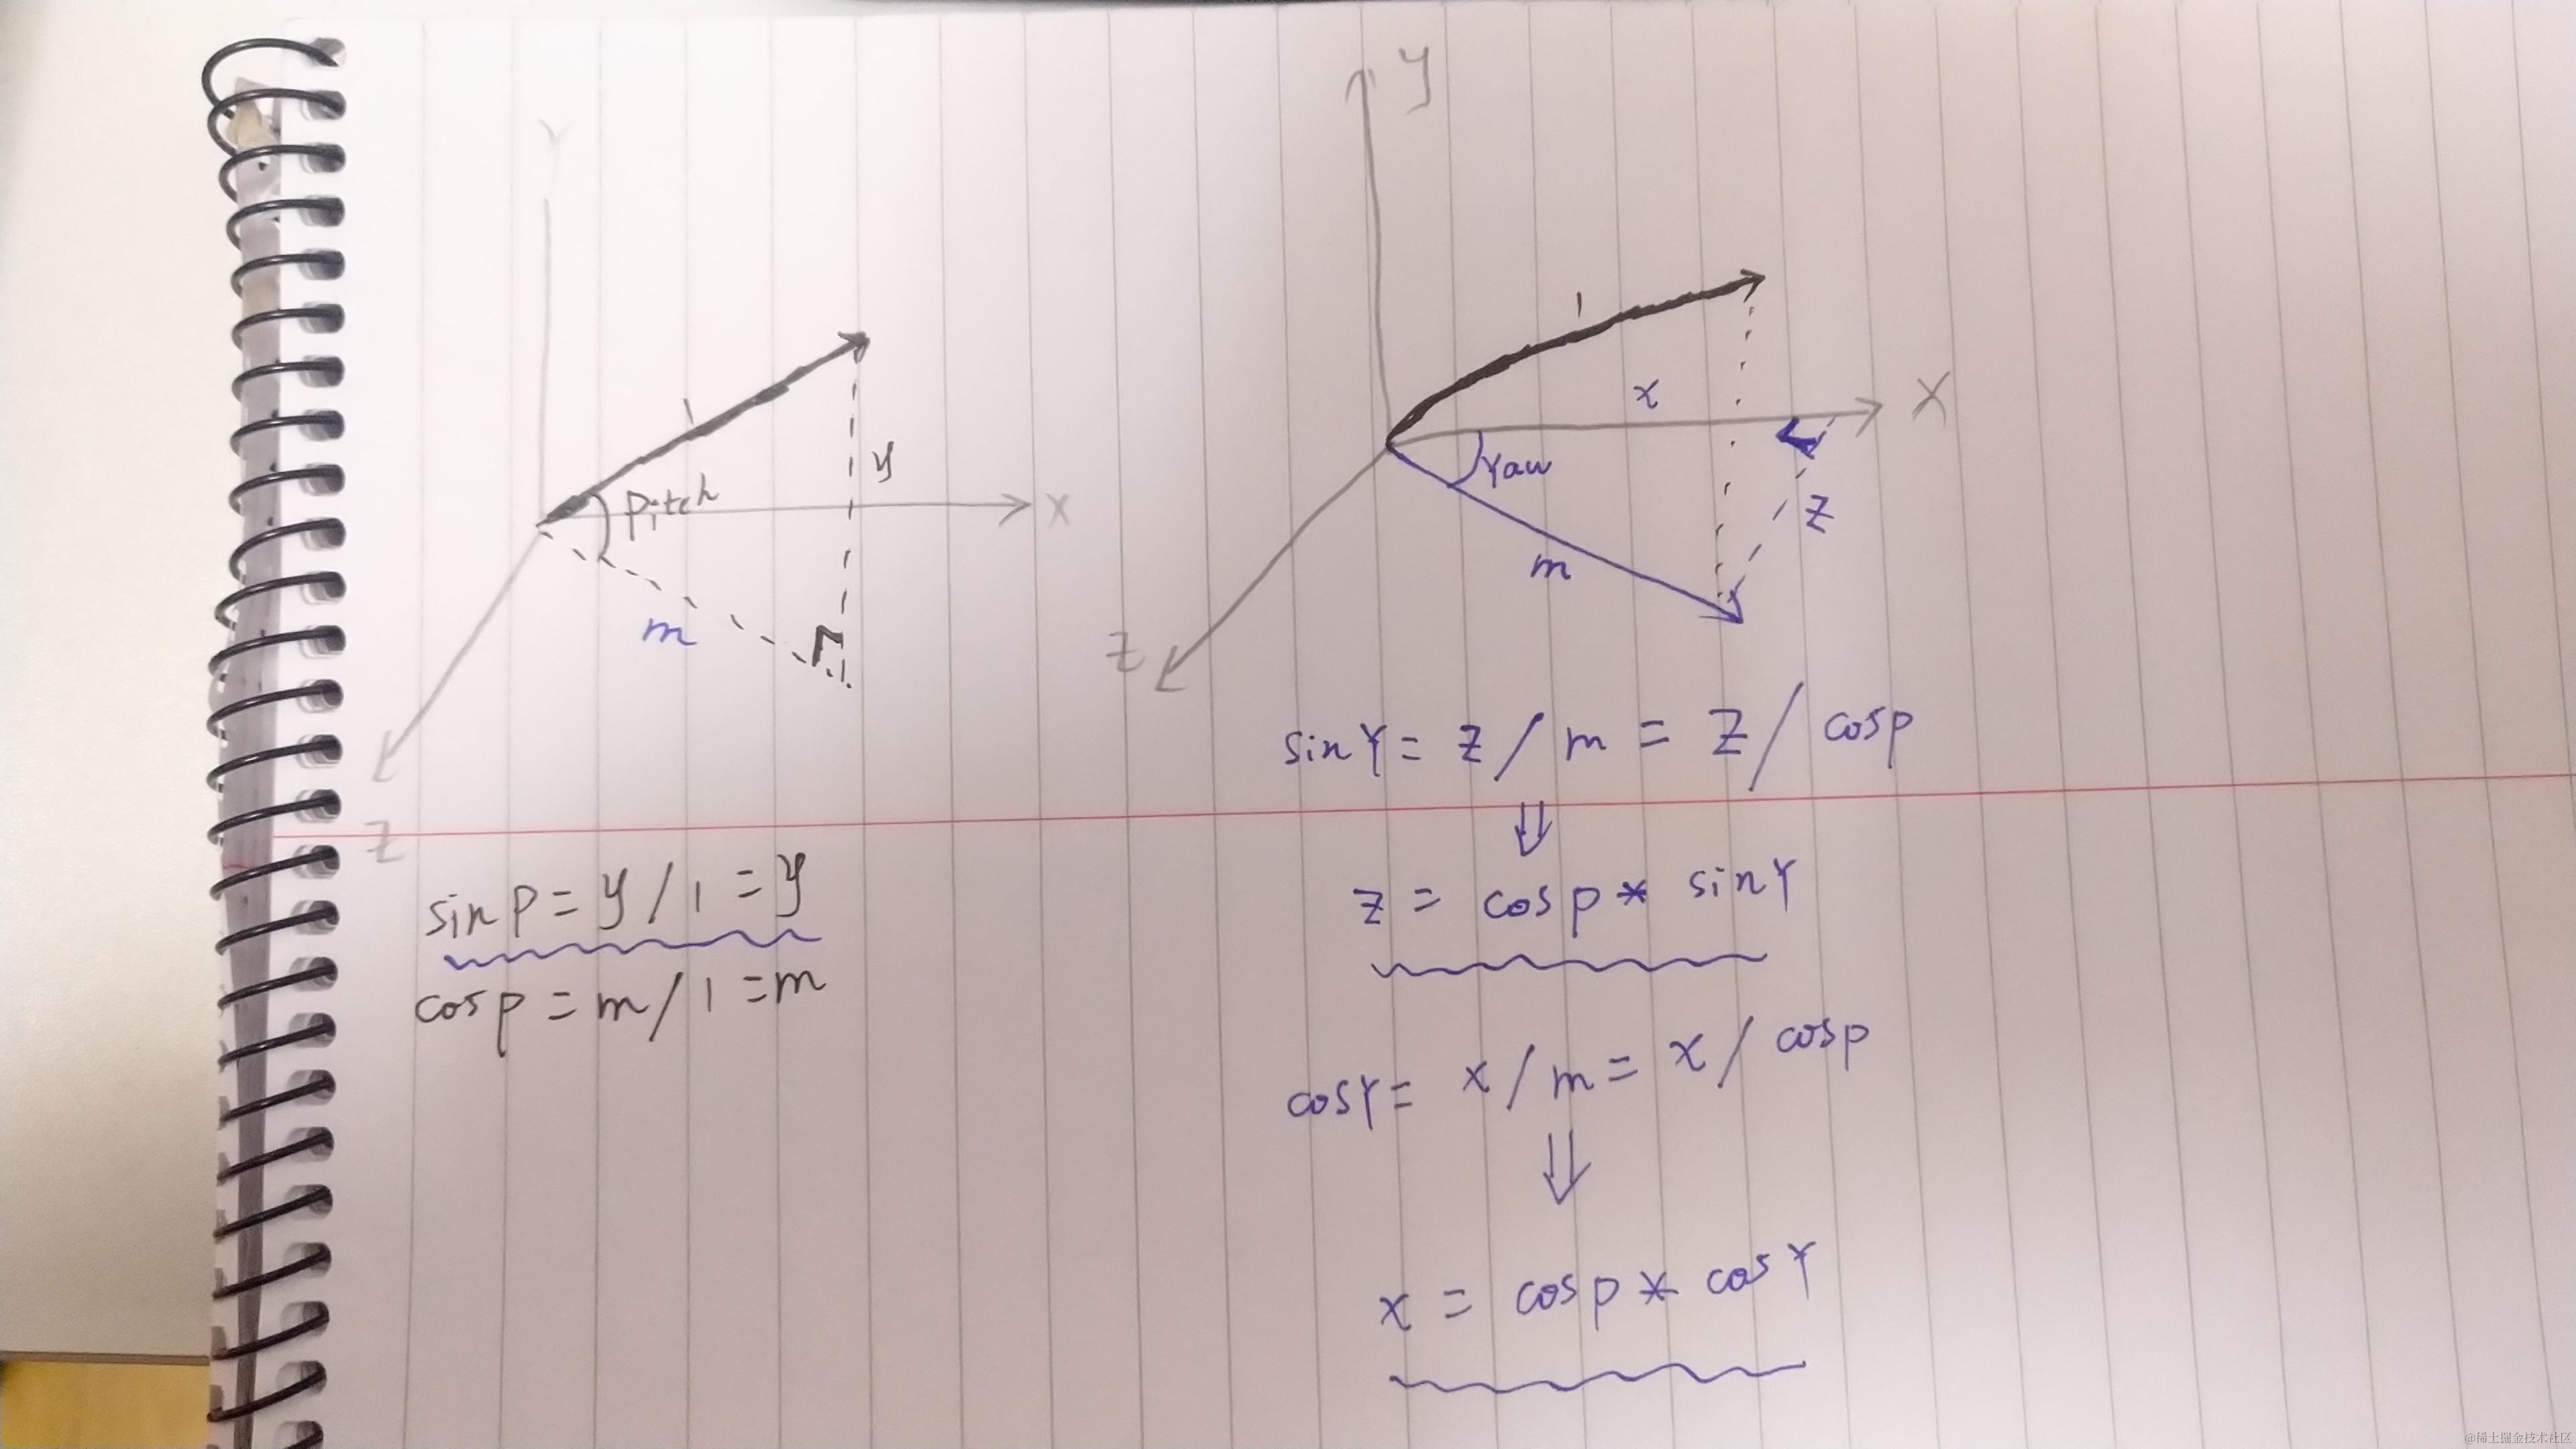 Y
1
Pitch
y
X
m
Z
sin p = y / 1 = y
cos p = m / 1 = m
y
1
x
X
Yaw
z
m
Z
sin Y = z / m = z / cosp
⇓
z = cos p * sin Y
cos Y = x / m = x / cosp
⇓
x = cos p * cos Y
@稀土掘金技术社区